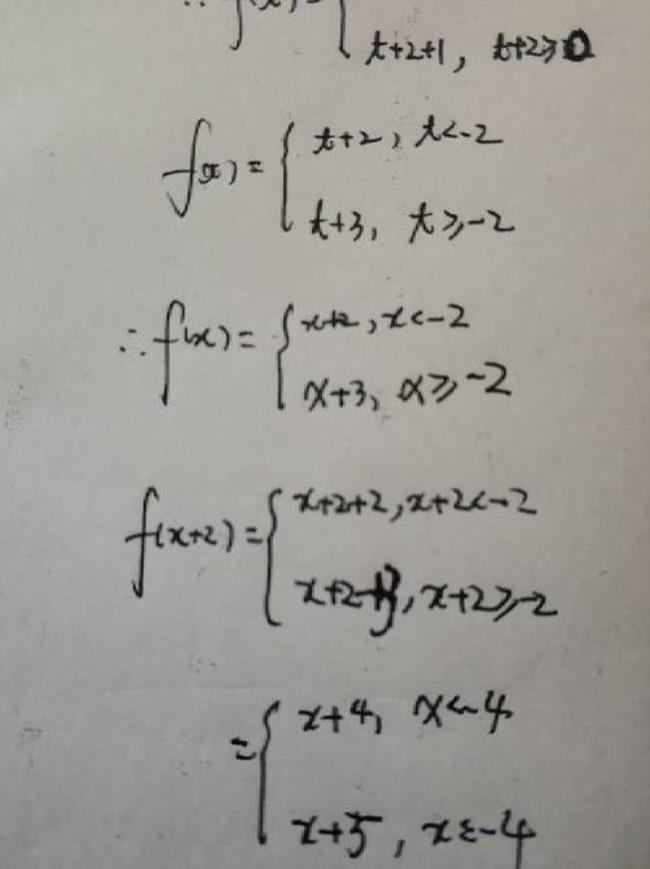 ∴ f(x) = {
t+2+1, t+2≥0
f(x) = { t+2, t<-2
t+3, t≥-2
∴ f(x) = { x+2, x<-2
x+3, x≥-2
f(x+2) = { x+2+2, x+2<-2
x+2+3, x+2≥-2
= { x+4, x<-4
x+5, x≥-4